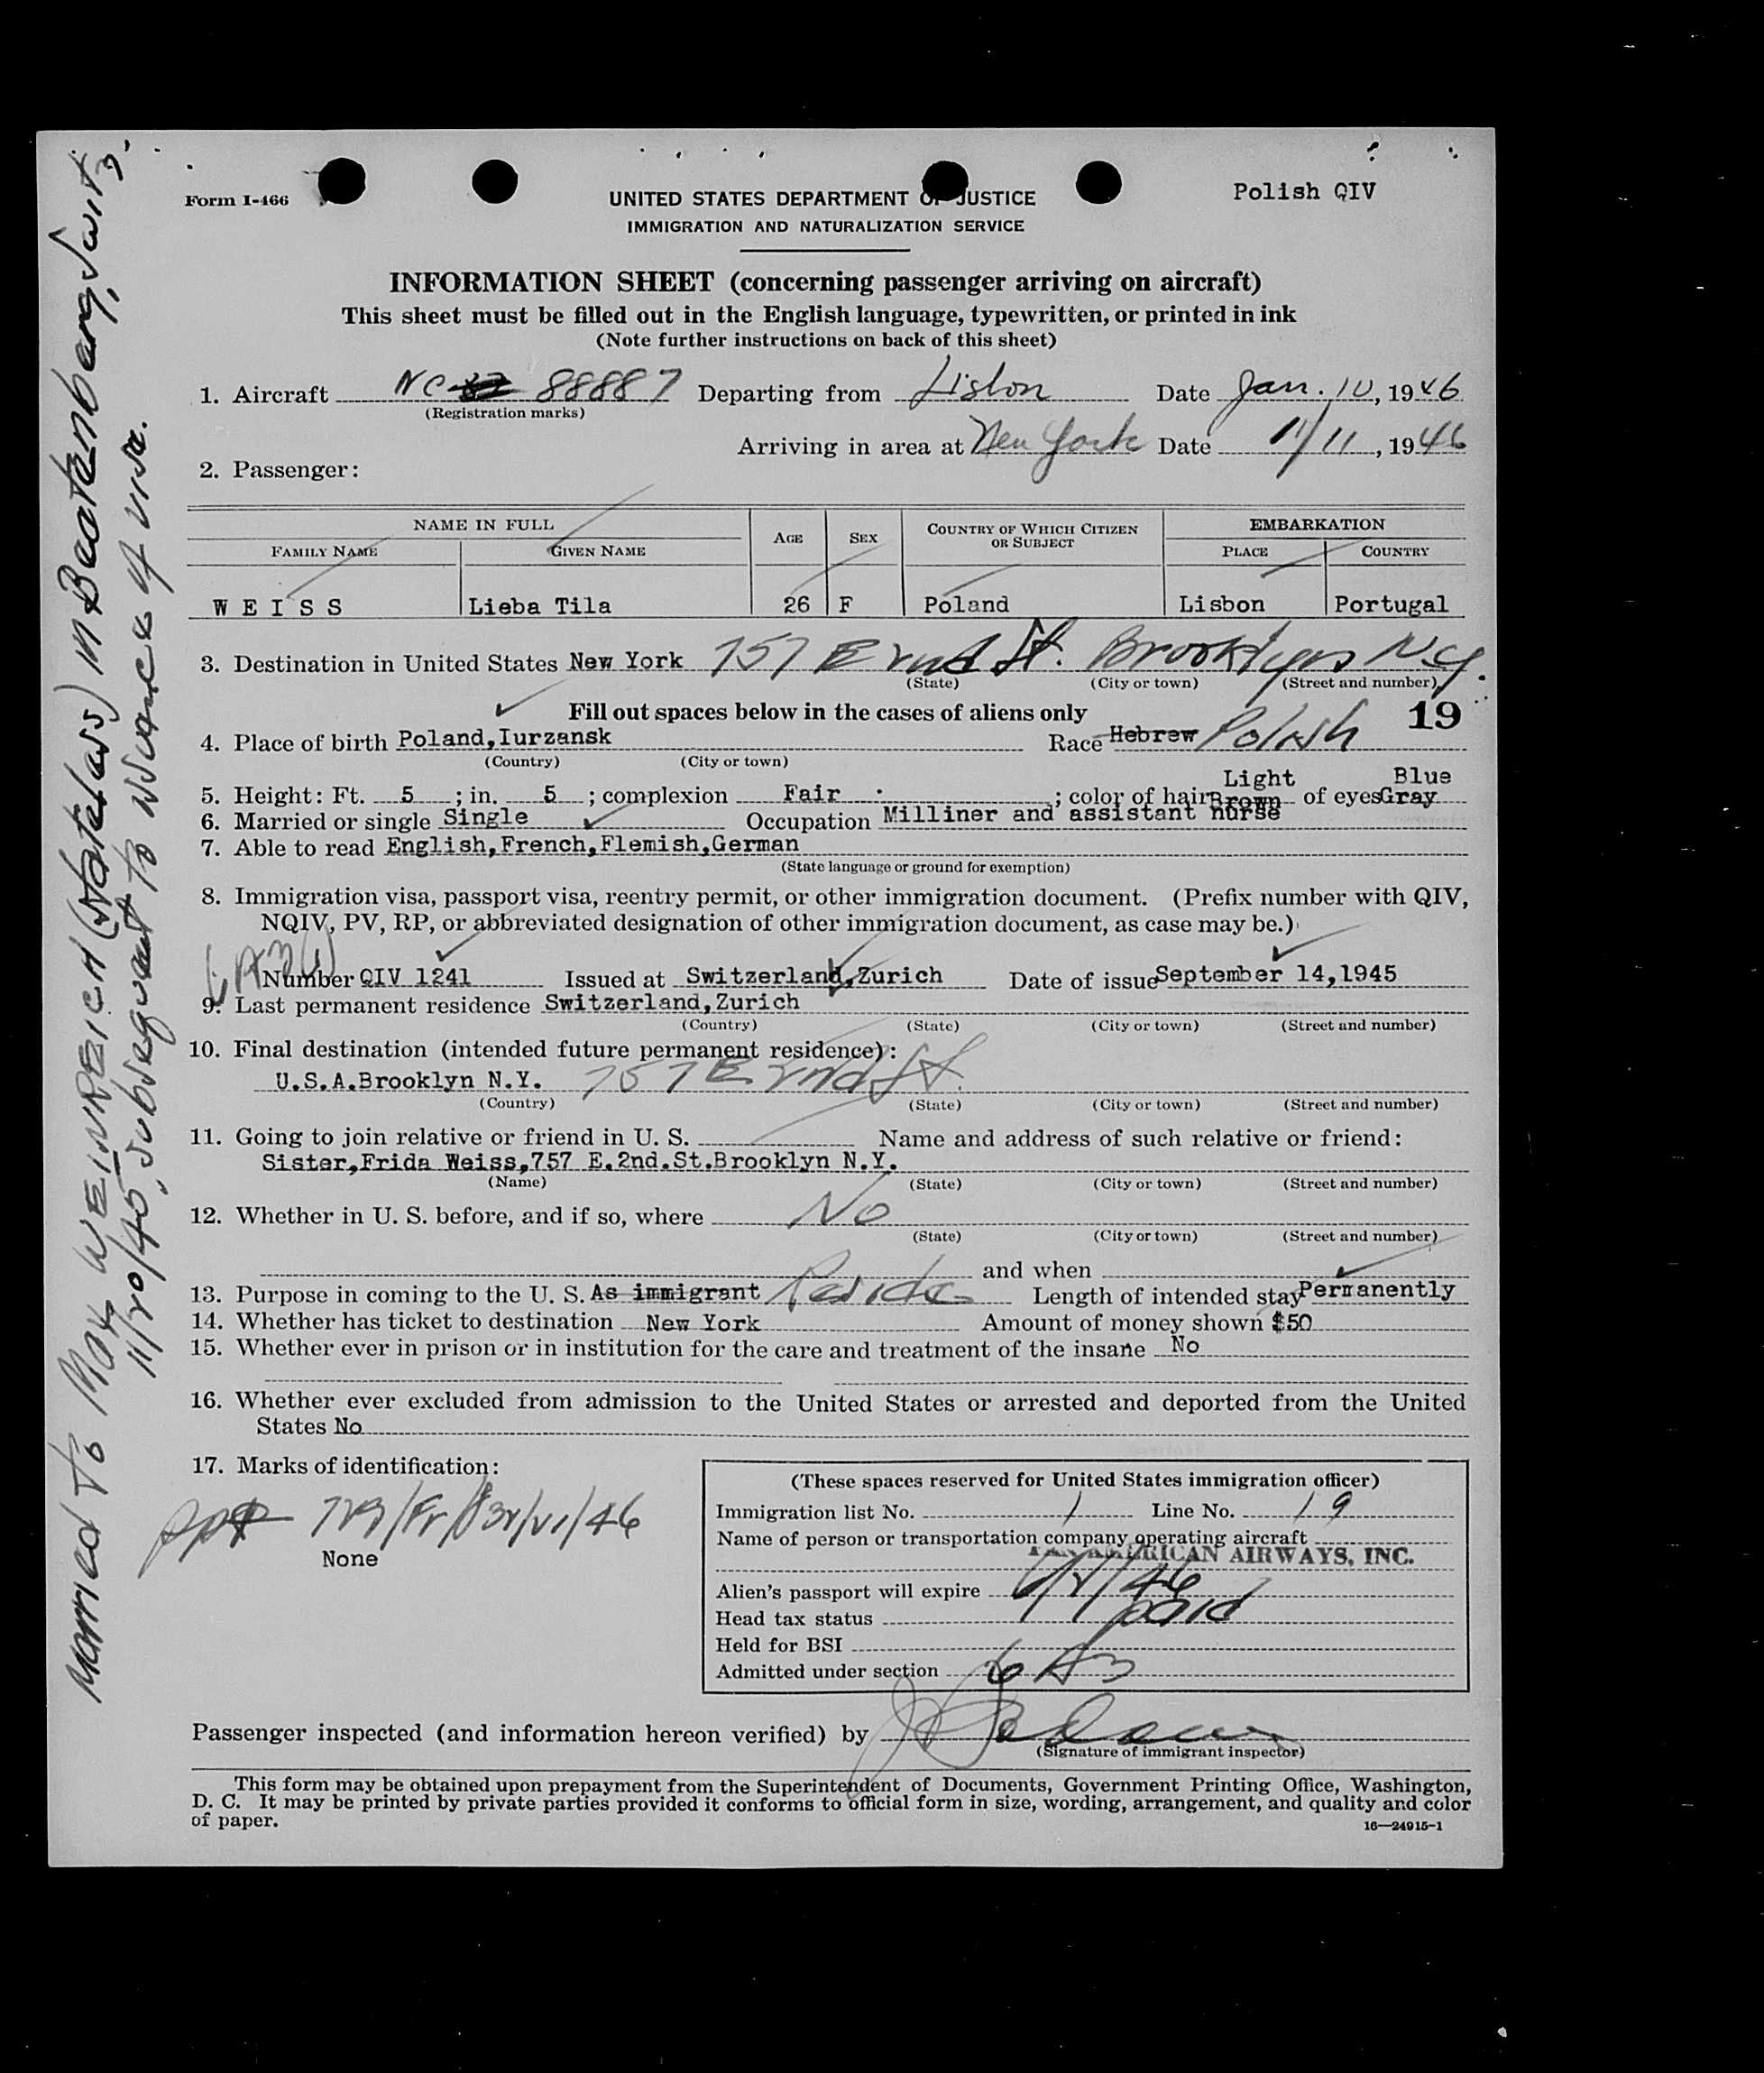 Form I-466
Polish QIV
UNITED STATES DEPARTMENT OF JUSTICE
IMMIGRATION AND NATURALIZATION SERVICE
INFORMATION SHEET (concerning passenger arriving on aircraft)
This sheet must be filled out in the English language, typewritten, or printed in ink
(Note further instructions on back of this sheet)
1. Aircraft NC 88887 Departing from Lisbon Date Jan. 10, 1946
(Registration marks)
Arriving in area at New York Date 1/11, 1946
2. Passenger:
NAME IN FULL AGE SEX COUNTRY OF WHICH CITIZEN OR SUBJECT EMBARKATION
FAMILY NAME GIVEN NAME PLACE COUNTRY
WEISS Lieba Tila 26 F Poland Lisbon Portugal
3. Destination in United States New York 757 E 2nd St. Brooklyn N.Y.
(State) (City or town) (Street and number)
Fill out spaces below in the cases of aliens only 19
4. Place of birth Poland, Iurzansk Race Hebrew Polish
(Country) (City or town)
Light Blue
5. Height: Ft. 5; in. 5; complexion Fair; color of hair Brown of eyes Gray
6. Married or single Single Occupation Milliner and assistant nurse
7. Able to read English,French,Flemish,German
(State language or ground for exemption)
8. Immigration visa, passport visa, reentry permit, or other immigration document. (Prefix number with QIV,
NQIV, PV, RP, or abbreviated designation of other immigration document, as case may be.)
6A3(1)
Number QIV 1241 Issued at Switzerland,Zurich Date of issue September 14,1945
9. Last permanent residence Switzerland,Zurich
(Country) (State) (City or town) (Street and number)
10. Final destination (intended future permanent residence):
U.S.A.Brooklyn N.Y. 757 E 2nd St.
(Country) (State) (City or town) (Street and number)
11. Going to join relative or friend in U. S. Name and address of such relative or friend:
Sister,Frida Weiss,757 E.2nd.St.Brooklyn N.Y.
(Name) (State) (City or town) (Street and number)
12. Whether in U. S. before, and if so, where No
(State) (City or town) (Street and number)
and when
13. Purpose in coming to the U. S. As immigrant Reside Length of intended stay Permanently
14. Whether has ticket to destination New York Amount of money shown $50
15. Whether ever in prison or in institution for the care and treatment of the insane No
16. Whether ever excluded from admission to the United States or arrested and deported from the United
States No
17. Marks of identification:
None
(These spaces reserved for United States immigration officer)
Immigration list No. 1 Line No. 19
Name of person or transportation company operating aircraft
PAN AMERICAN AIRWAYS, INC.
Alien's passport will expire 6/2/46
Head tax status paid
Held for BSI
Admitted under section 6 A3
Passenger inspected (and information hereon verified) by
(Signature of immigrant inspector)
This form may be obtained upon prepayment from the Superintendent of Documents, Government Printing Office, Washington,
D. C. It may be printed by private parties provided it conforms to official form in size, wording, arrangement, and quality and color
of paper.
16—24915-1
Married to Max WEINREICH (Stateless) in Beatenberg, Switz.
11/20/45, subsequent to issuance of visa.